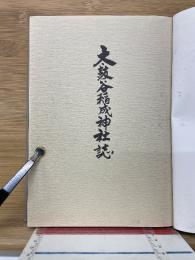 太皷谷稲成神社誌